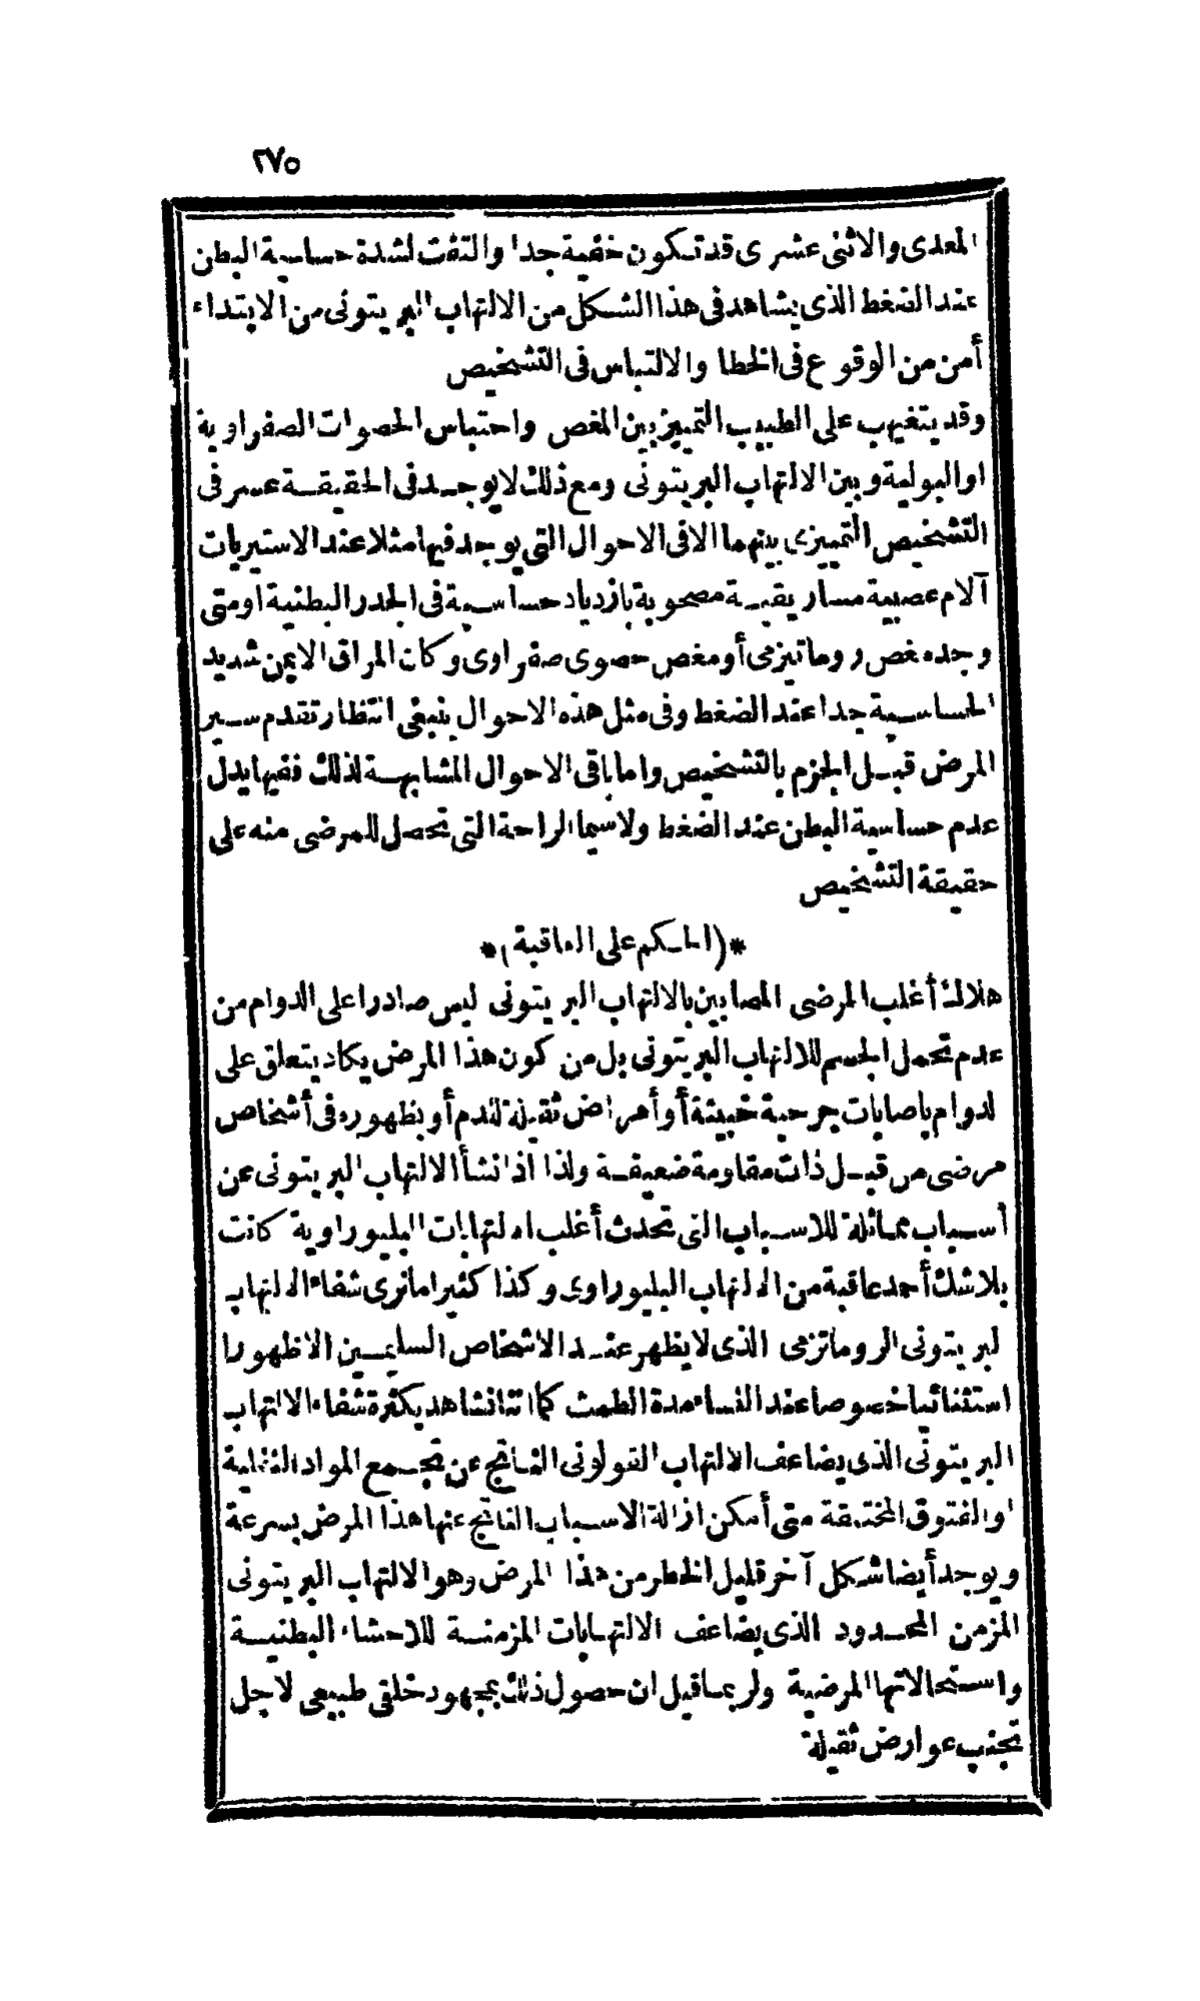 ٢٧٥
المعدى والاثنى عشرى قد تكون خفيفة جدا والتفت لشدة حساسية البطن
عند الضغط الذى يشاهد فى هذا الشكل من الالتهاب البريتونى من الابتداء
أمن من الوقوع فى الخطا والالتباس فى التشخيص
وقد يتغيهب على الطبيب التمييز بين المغص واحتباس الحصوات الصفراوية
او البولية وبين الالتهاب البريتونى ومع ذلك لا يوجد فى الحقيقة عسر فى
التشخيص التمييزى بينهما الا فى الاحوال التى يوجد فيها مثلا عند الاستيريات
آلام عصبية مساريقية مصحوبة بازدياد حساسية فى الجدر البطنية او متى
وجد مغص روماتيزمى أو مغص حصوى صفراوى وكان المراق الايمن شديد
الحساسية جدا عند الضغط وفى مثل هذه الاحوال ينبغى انتظار تقدم سير
المرض قبل الجزم بالتشخيص واما باقى الاحوال المشابهة لذلك ففيها يدل
عدم حساسية البطن عند الضغط ولا سيما الراحة التى تحصل للمرضى منه على
حقيقة التشخيص
*(الحكم على العاقبة)*
هلاك أغلب المرضى المصابين بالالتهاب البريتونى ليس صادرا على الدوام من
عدم تحمل الجسم للالتهاب البريتونى بل من كون هذا المرض يكاد يتعلق على
لدوام باصابات جرحية خبيثة أو أمراض ثقيلة للدم أو بظهوره فى أشخاص
مرضى من قبل ذات مقاومة ضعيفة ولذا اذا نشأ الالتهاب البريتونى عن
أسباب مماثلة للاسباب التى تحدث أغلب الالتهابات البليوراوية كانت
بلاشك أحمد عاقبة من الالتهاب البليوراوى وكذا كثيرا ما نرى شفاء الالتهاب
لبريتونى الروماتزمى الذى لا يظهر عند الاشخاص السليمين الا ظهورا
استثنائيا خصوصا عند النساء مدة الطمث كما اننا نشاهد بكثرة شفاء الالتهاب
البريتونى الذى يضاعف الالتهاب القولونى الناتج عن تجمع المواد الثفلية
او الفتوق المختنقة متى أمكن ازالة الاسباب الناتج عنها هذا المرض بسرعة
ويوجد أيضا شكل آخر قليل الخطر من هذا المرض وهو الالتهاب البريتونى
المزمن المحدود الذى يضاعف الالتهابات المزمنة للاحشاء البطنية
واستحالاتها المرضية ولربما قيل ان حصول ذلك بمجهود خلقى طبيعى لاجل
تجنب عوارض ثقيلة